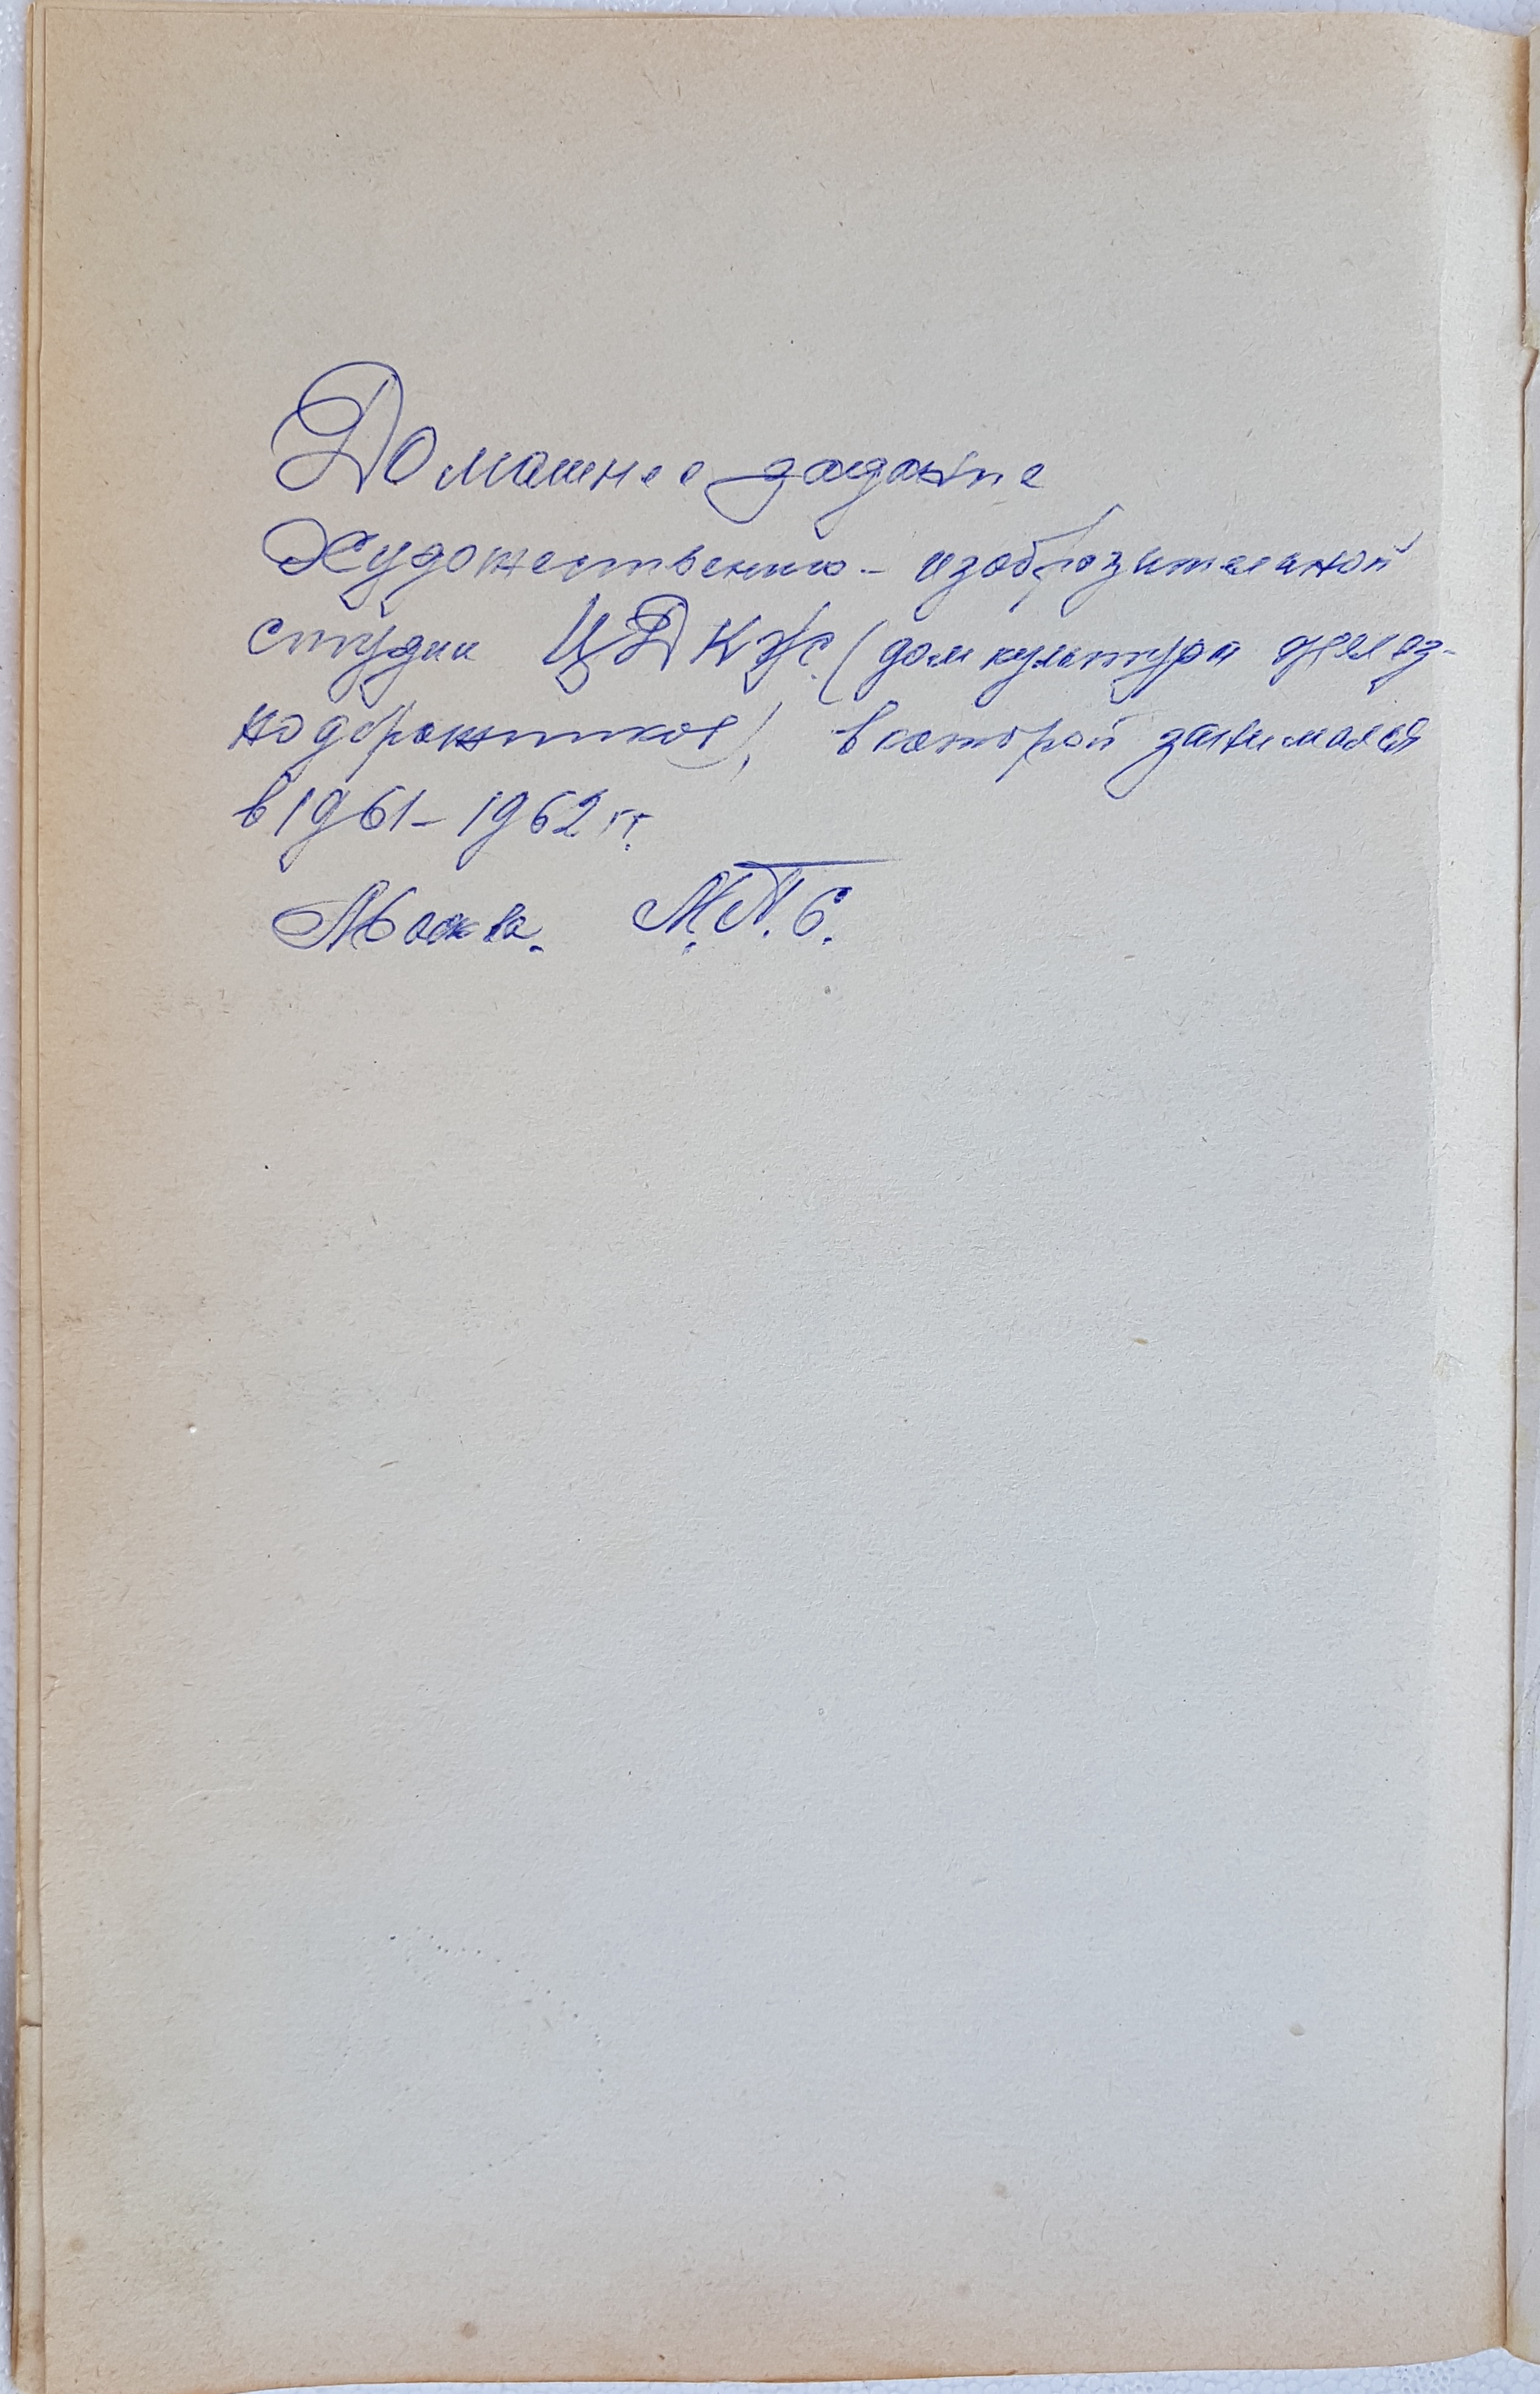 Домашнее задание
Художественно - изобразительной
студии ЦДКЖ (дом культуры желез-
нодорожников), в которой занимался
в 1961 - 1962 гг.
Москва. М.П.С.